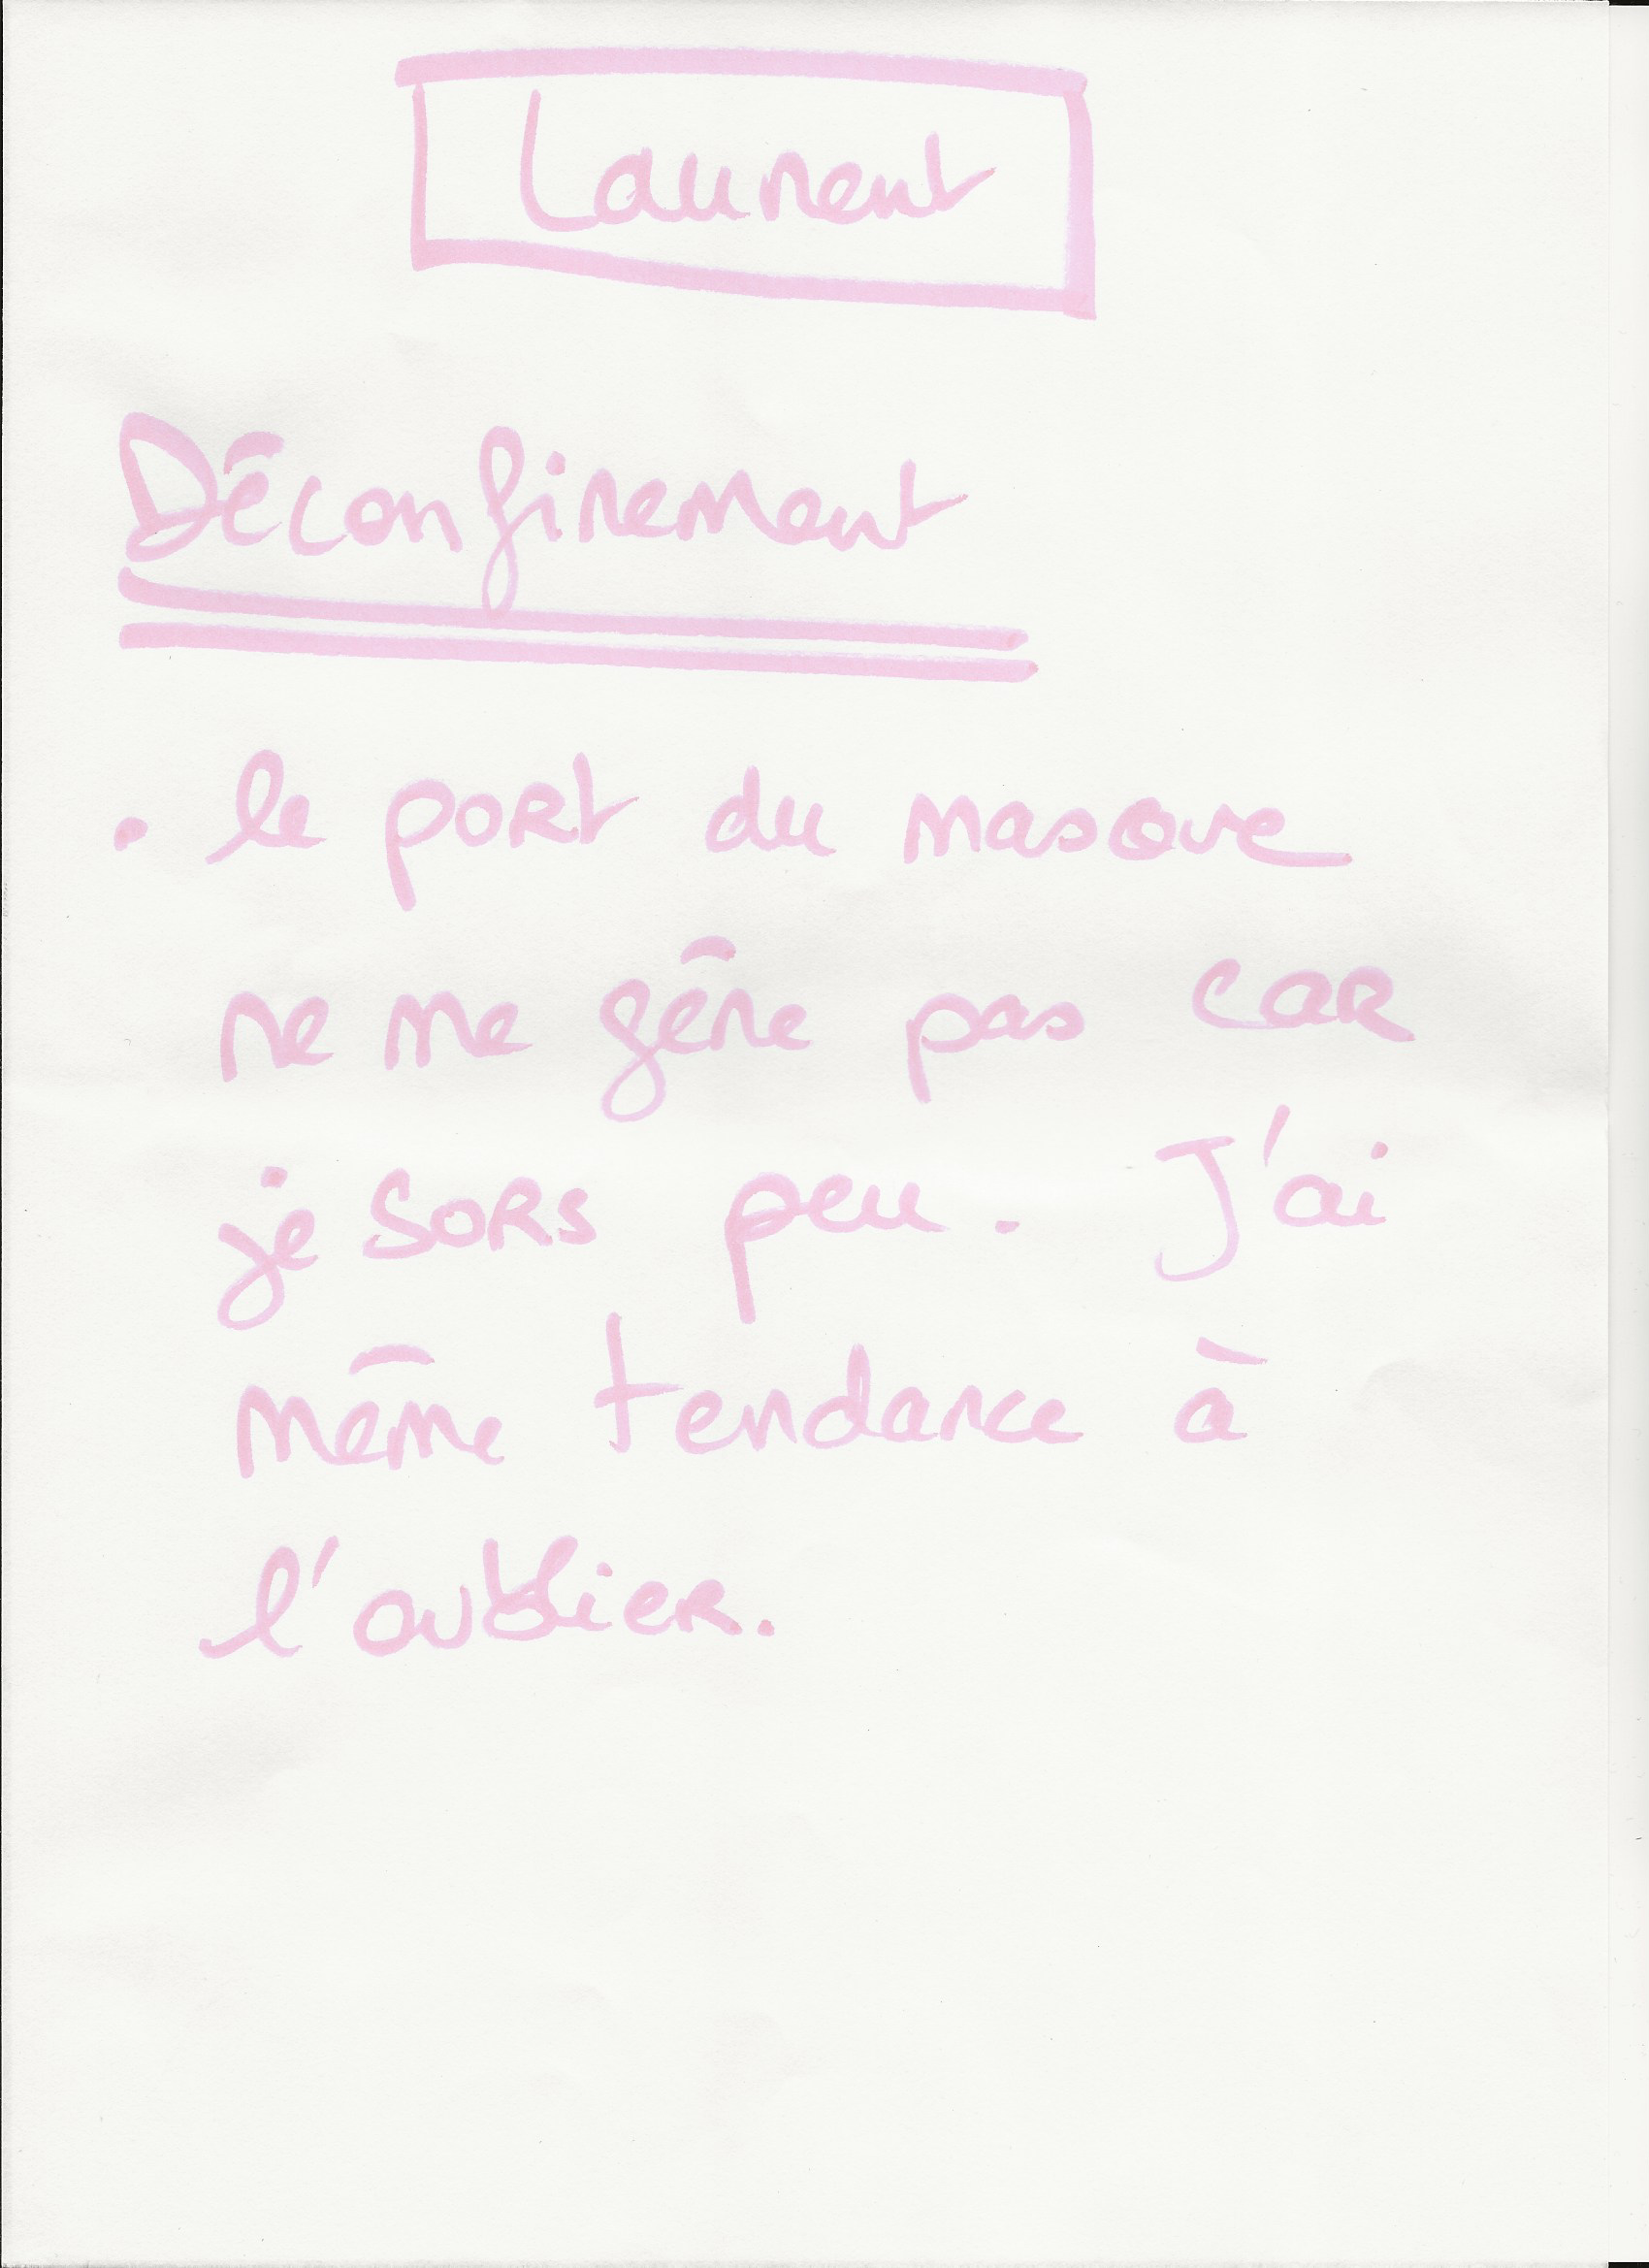 Laurent
Déconfinement
. le port du masque
ne me gêne pas car
je sors peu. J'ai
même tendance à
l'oublier.